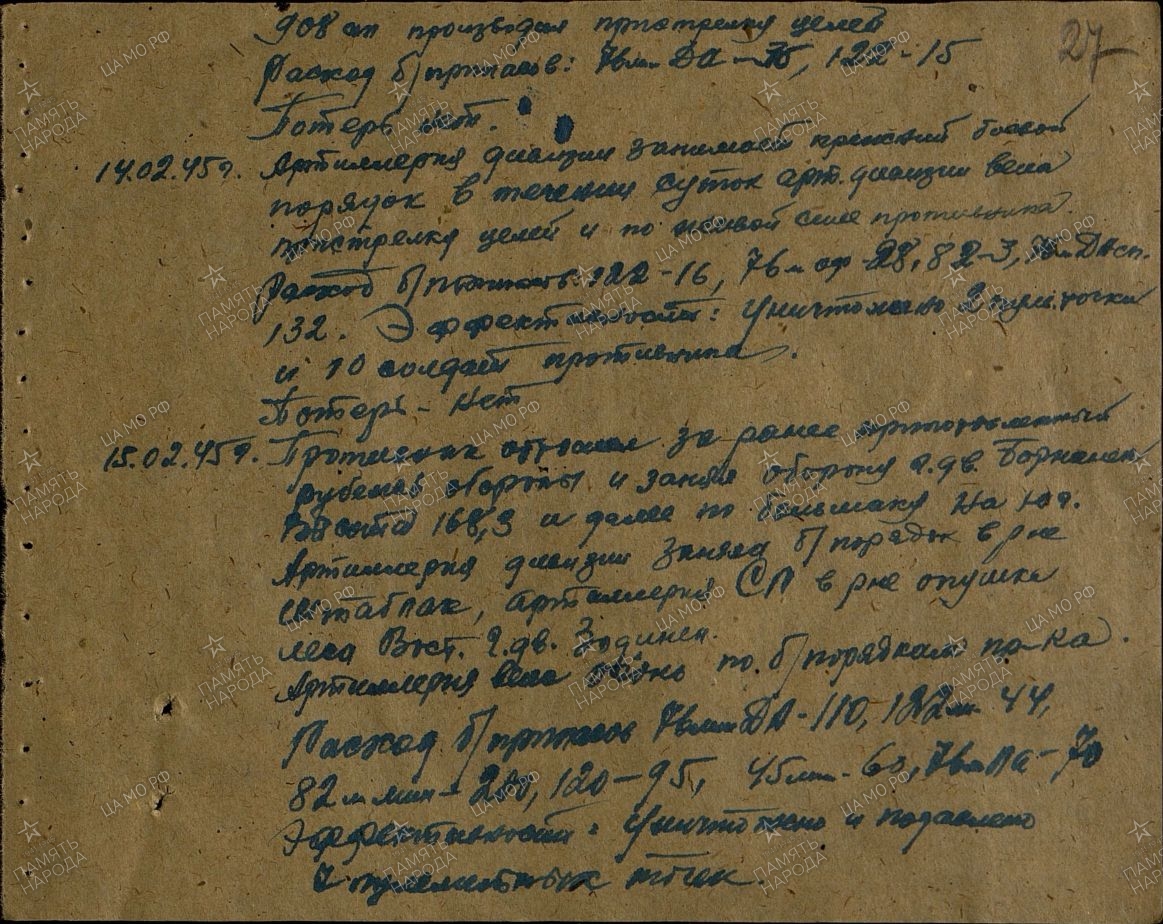 27
908 ап производил пристрелку целей
Расход б/припасов: 76мм ДА - 75, 122 - 15
Потерь нет.
14.02.45г. Артиллерия дивизии занимает прежний боевой
порядок в течении суток арт. дивизии вела
пристрелку целей и по живой силе противника.
Расход б/припасов: 122-16, 76м 28, 82-3,
132. Эффективность: Уничтожено 2 пул. точки
и 10 солдат противника.
Потерь - нет
15.02.45г. Противник отошел за ранее приготовленный
рубеж обороны и занял оборону г.дв.
Высота 168,3 и далее по большаку на юг.
Артиллерия дивизии заняла б/порядок в р-не
артиллерия СП в р-не опушка
леса Вост. г.дв.
Артиллерия вела огонь по б/порядкам пр-ка.
Расход б/припасов 76мм ДА-110, 122мм 44,
82м мин - 200, 120-95, 45мм-60, 76м ПА-70
Эффективность: Уничтожено и подавлено
7 пулеметных точек.
ПАМЯТЬ НАРОДА
ЦА МО РФ